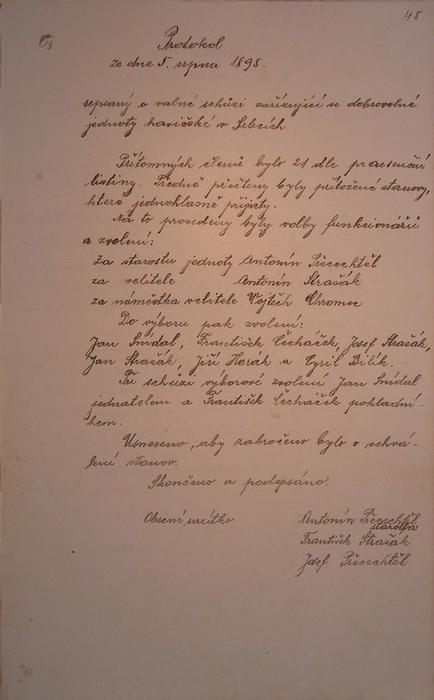 45.
Protokol
ze dne 5. srpna 1895.
sepsaný o valné schůzi zařizující se dobrovolné
jednoty hasičské v Srbcích
Přítomných členů bylo 21 dle praesenční
listiny. Předně přečteny byly přiložené stanovy,
které jednohlasně přijaty.
Na to provedeny byly volby funkcionářů
a zvoleni:
Za starostu jednoty Antonín Přecechtěl
za velitele Antonín Strašák
za náměstka velitele Vojtěch Chromec
Do výboru pak zvoleni:
Jan Snídal, František Čecháček, Josef Strašák,
Jan Strašák, Jiří Horák a Cyril Bílik.
Při schůzi výborové zvoleni Jan Snídal
jednatelem a František Čecháček pokladní-
kem.
Usneseno, aby zakročeno bylo o schvá-
lení stanov.
Skončeno a podepsáno.
Obecní razítko Antonín Přecechtěl
starosta
František Strašák
Josef Přecechtěl